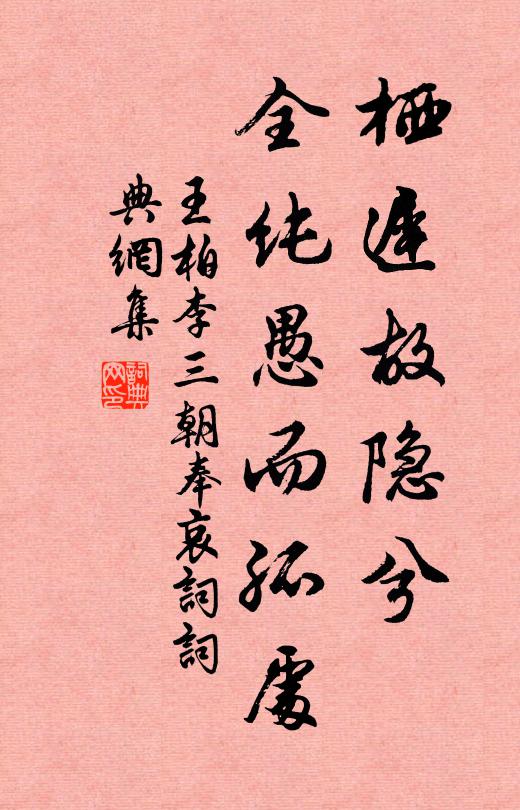 栖遲故隐兮
全纯愚而孤處
王柏李三朝奉哀詞詞
典網集
詞典
网印